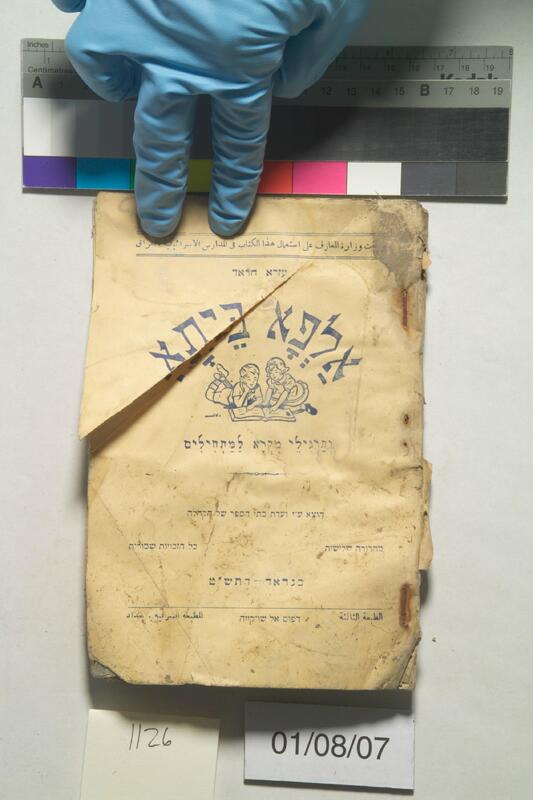 Inches
Centimetres
A 12 13 14 15 B 17 18 19
Kodak
وزارة المعارف على استعمال هذا الكتاب في المدارس الاسرائيلية
עזרא חדאד
אַלֶפָא בֵּיתָא
ותרגילי מקרא למתחילים
הוצא ע״י ועדת בתי הספר של הקהלה
מהדורה שלישית כל הזכויות שמורות
בגדאד – התש״ט
الطبعة الثالثة דפוס אל שרקייה
1126
01/08/07